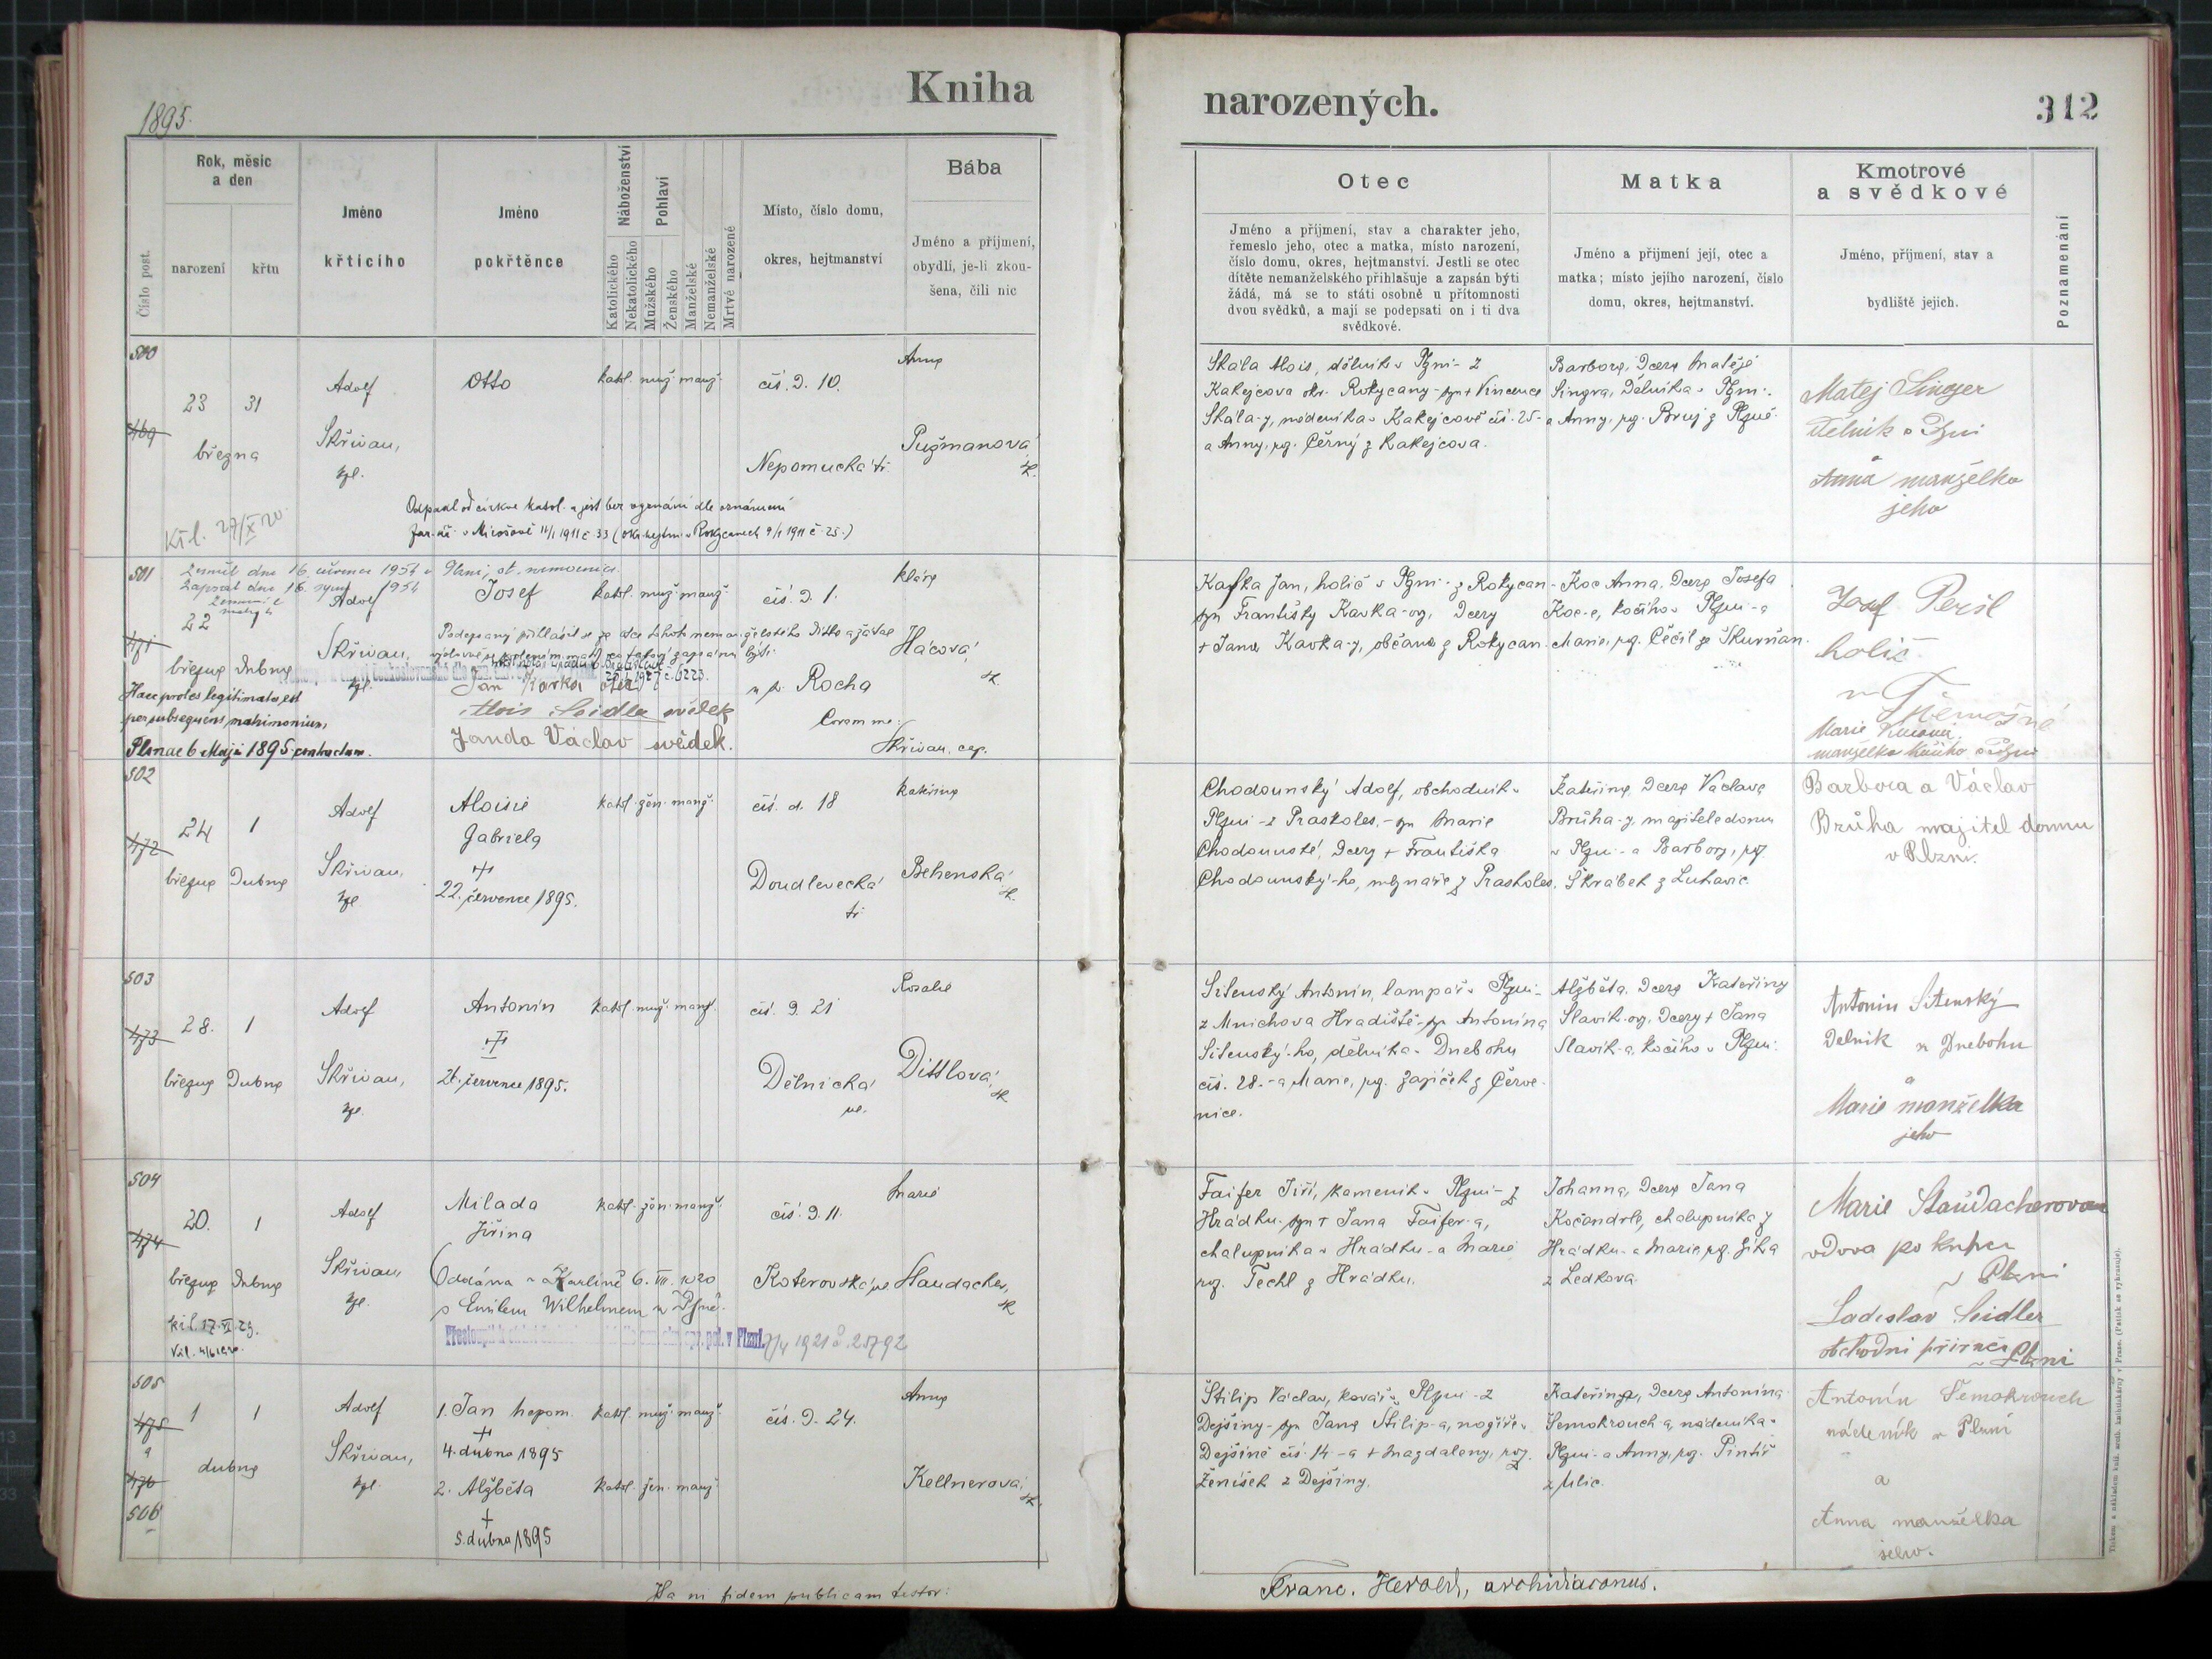 Kniha
narozených.
312
1895.
Číslo post.
Rok, měsíc
a den
narození
křtu
Jméno
křtícího
Jméno
pokřtěnce
Náboženství
Katolického
Nekatolického
Pohlaví
Mužského
Ženského
Manželské
Nemanželské
Mrtvé narozené
Místo, číslo domu,
okres, hejtmanství
Bába
Jméno a příjmení,
obydlí, je-li zkou-
šena, čili nic
Otec
Jméno a příjmení, stav a charakter jeho,
řemeslo jeho, otec a matka, místo narození,
číslo domu, okres, hejtmanství. Jestli se otec
dítěte nemanželského přihlašuje a zapsán býti
žádá, má se to státi osobně u přítomnosti
dvou svědků, a mají se podepsati on i ti dva
svědkové.
Matka
Jméno a příjmení její, otec a
matka; místo jejího narození, číslo
domu, okres, hejtmanství.
Kmotrové
a svědkové
Jméno, příjmení, stav a
bydliště jejich.
Poznamenání
500
469
23 31
března
Adolf
Skřivan,
Otto
katol. muž. manž.
čís. d. 10.
Nepomucká tř.
Anna
Pužmanová
Skála Alois, dělník v Plzni - z
Kakejcova okr. Rokycany - syn + Vincence
Skála-y, nádeníka v Kakejcově čís. 25 -
a Anny, roz. Černý z Kakejcova.
Barbora, dcera Matěje
Singra, dělníka v Plzni
a Anny, roz. Bruj z Plzně.
Matej Singer
Dělnik v Plzni
a
Anna manželka
jeho
Odpadl od církve katol. a jest bez vyznání dle oznámení
far. úř. v Mirošově 11/1 1911 č 33 (okr. hejtm. v Rokycanech 9/1 1911 č. 25.)
Kř. l. 27/X 20
501
471
Zemřel dne 16. července 1954 v Plzni, st. nemocnice.
Zapsal dne 16. srpna 1954
22
března dubna
Adolf
Skřivan,
Josef
katol. muž. manž.
čís. d. 1.
Rocha
Klára
Hácová
Podepsaný přihlásil se za otce tohoto nemanželského dítka a žádal
Jan Kavka otec
Alois Seidler svědek
Janda Václav svědek.
Coram me:
Skřivan, cap.
Haec proles legitimata est
per subsequens matrimonium,
Plznae 6 Maji 1895 contractum.
Kavka Jan, holič v Plzni - z Rokycan -
syn Františky Kavka-ov, dcery
+ Jana Kavka-y, občana z Rokycan.
Koc Anna, dcera Josefa
Koc-e, kočího v Plzni - a
Marie, roz. Čečil ze Skurňan.
Josef Peršl
holič
v Třemošné
Marie Kocová
manželka kočího v Plzni
502
472
24 1
března dubna
Adolf
Skřivan,
Aloisie
Gabriela
+
22. července 1895.
katol. žen. manž.
čís. d. 18
Doudlevecká
tř.
Kateřina
Behenská
Chodounský Adolf, obchodník v
Plzni - z Praskoles, - syn Marie
Chodounské, dcery + Františka
Chodounský-ho, mlynáře z Praskoles.
Kateřina, dcera Václava
Brůha-y, majitele domu
v Plzni - a Barbory, roz.
Škrábek z Luhavic.
Barbora a Václav
Brůha majitel domu
v Plzni.
503
473
28. 1
března dubna
Adolf
Skřivan,
Antonín
+
26. července 1895.
katol. muž. manž.
čís. d. 21
Dělnická
ul.
Rosalie
Dittlová
Sitenský Antonín, lampář v Plzni -
z Mnichova Hradiště - syn Antonína
Sitenský-ho, dělníka v Dnebohu
čís. 28. - a Marie, roz. Zajíček z Červe-
nice.
Alžběta, dcera Kateřiny
Slavík-ov, dcery + Jana
Slavík-a, kočího v Plzni.
Antonin Sitenský
Delnik v Dnebohu
a
Marie manželka
jeho
504
474
20. 1
března dubna
Adolf
Skřivan,
Milada
Jiřina
katol. žen. manž.
čís. d. 11.
Koterovská ul.
Marie
Staudacher,
Oddána v Karlíně 6. VIII. 1920
s Emilem Wilhelmem z Plzně.
Faifer Jiří, kameník v Plzni - z
Hrádku - syn + Jana Faifer-a,
chalupníka v Hrádku - a Marie
roz. Techl z Hrádku.
Johanna, dcera Jana
Kočandrle, chalupníka z
Hrádku - a Marie, roz. Jíha
z Ledkova.
Marie Staudacherova
vdova po kupci
v Plzni
Ladislav Seidler
obchodní příručí
v Plzni
505
475
a
476
506
1 1
dubna
Adolf
Skřivan,
1. Jan Nepom.
+
4. dubna 1895
2. Alžběta
+
5. dubna 1895
katol. muž. manž.
katol. žen. manž.
čís. d. 24.
Anna
Kellnerová
Štilip Václav, kovář v Plzni - z
Dejšiny - syn Jana Štilip-a, nožíře v
Dejšině čís. 14 - a + Magdaleny, roz.
Ženíšek z Dejšiny.
Kateřina, dcera Antonína
Semokrouch-a, nádeníka v
Plzni - a Anny, roz. Pintíř
z Ulic.
Antonín Semokrouch
nádeník v Plzni
a
Anna manželka
jeho.
Ita in fidem publicam testor:
Franc. Herold, archidiaconus.